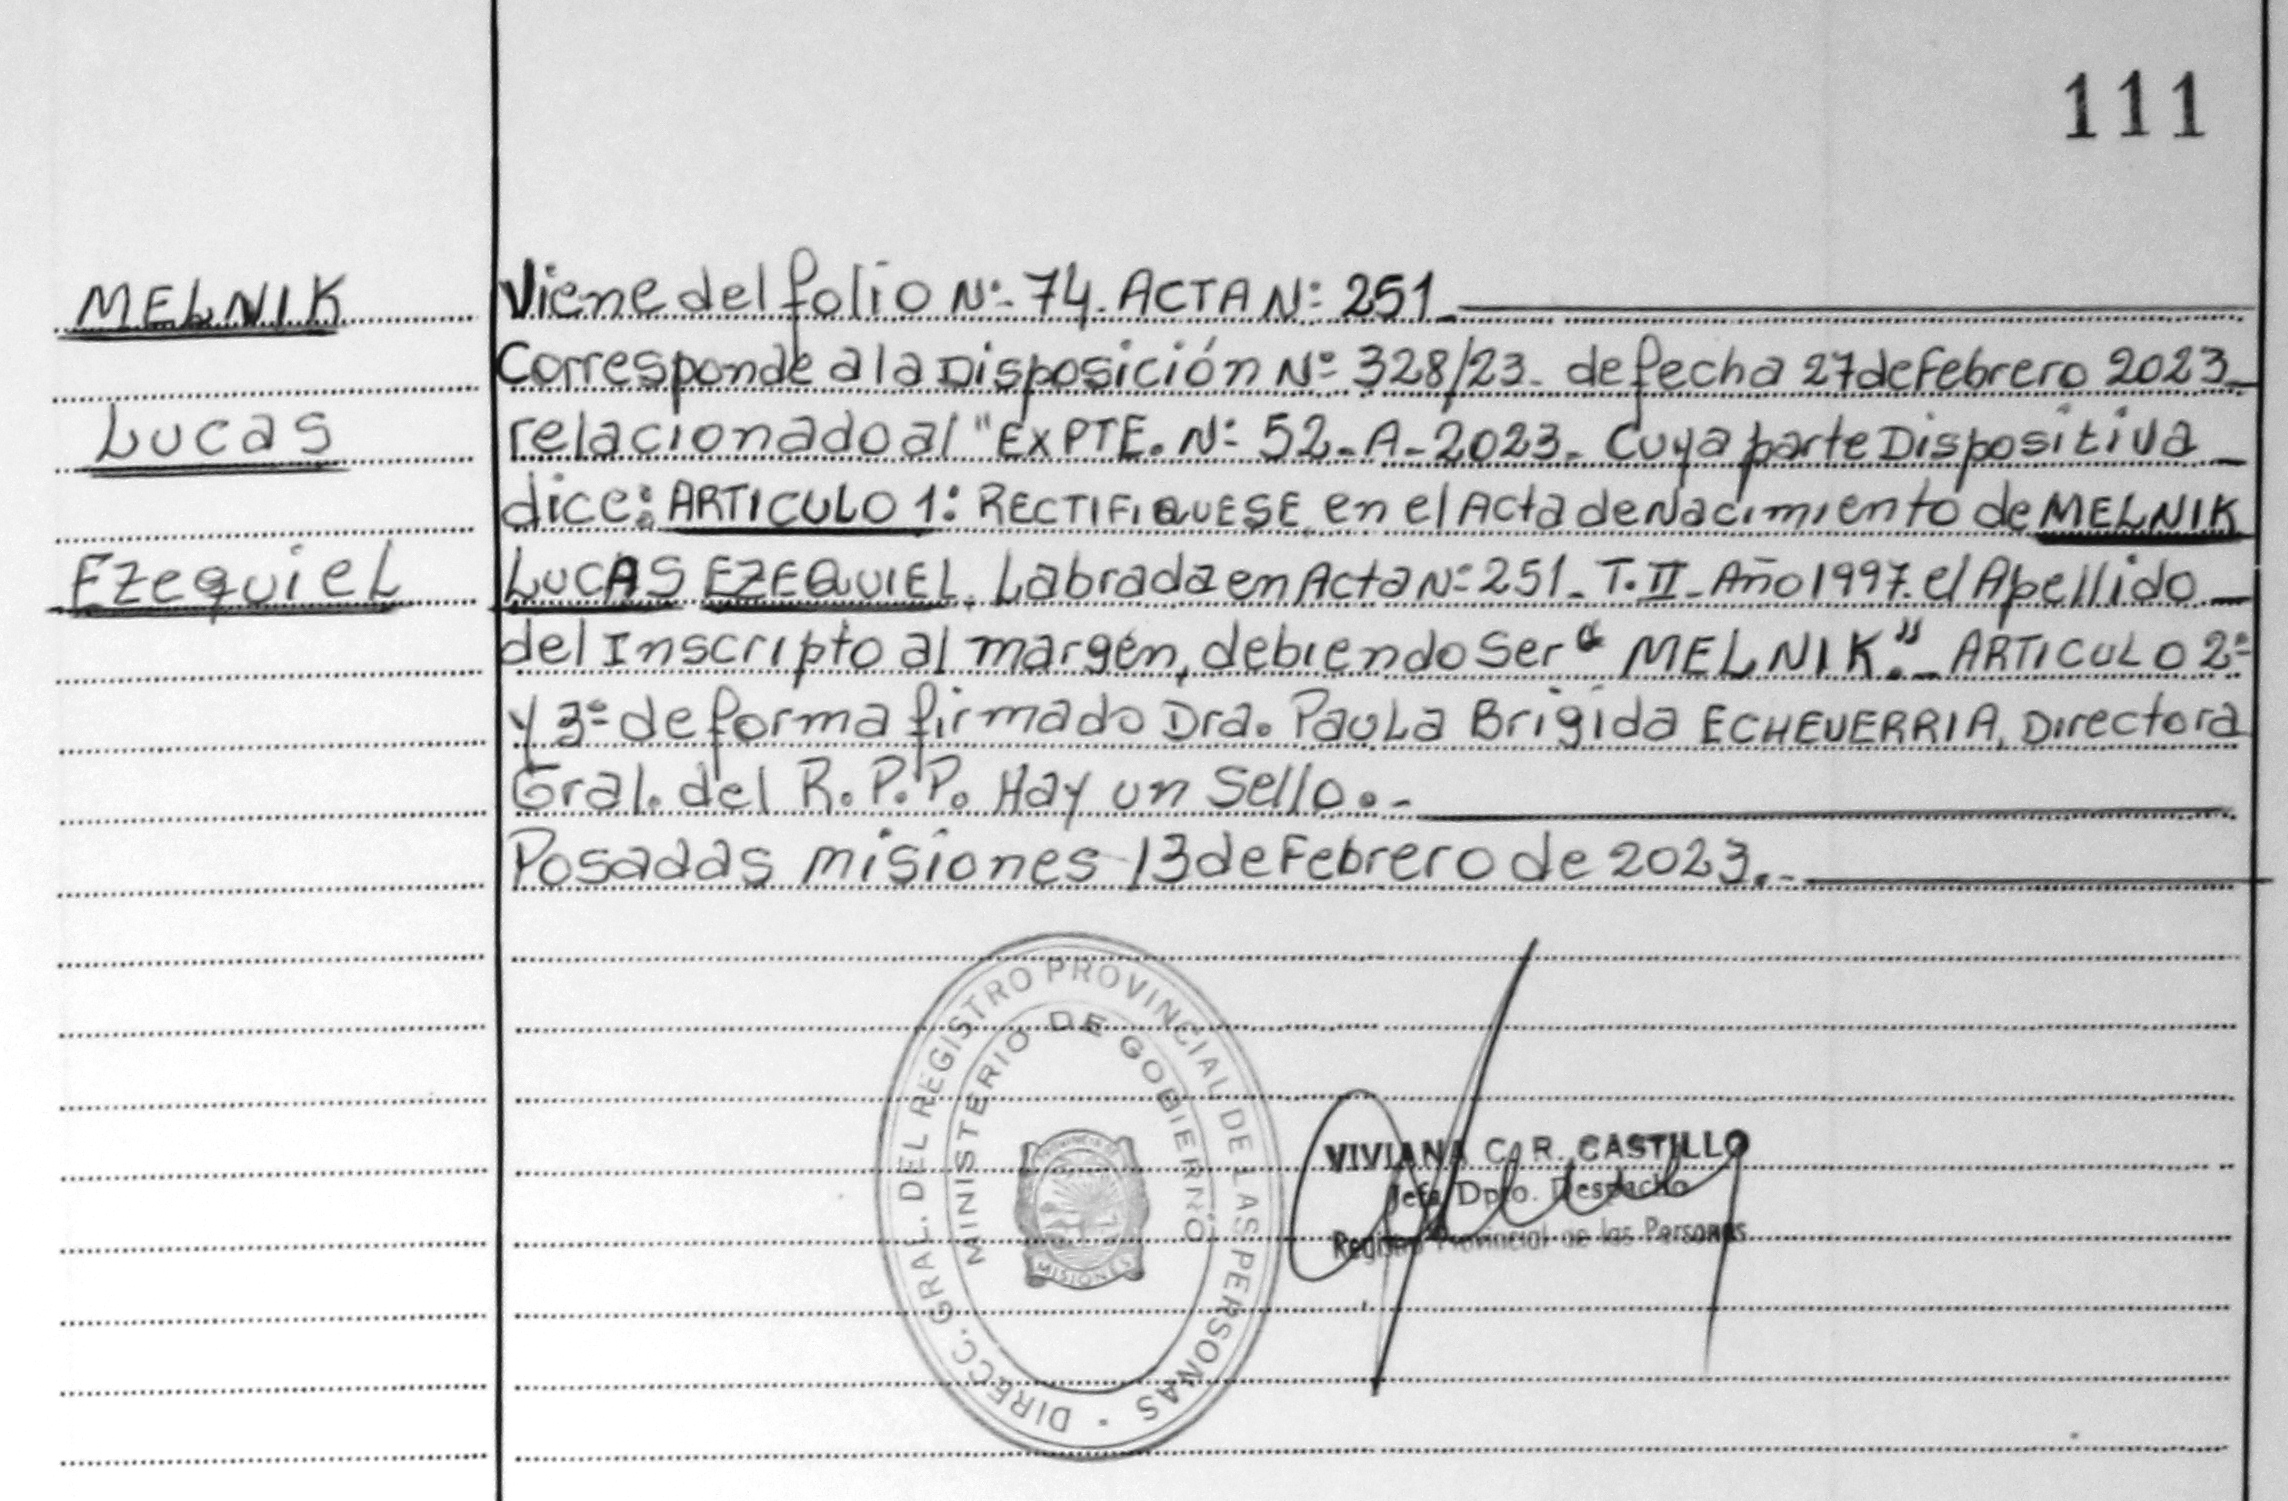 111
MELNIK
Lucas
Ezequiel
Viene del folio Nº 74. ACTA Nº 251
Corresponde a la Disposición Nº 328/23 - de fecha 27 de Febrero 2023
relacionado al "EXPTE. Nº 52-A-2023 - Cuya parte Dispositiva
dice: ARTICULO 1: RECTIFIQUESE en el Acta de Nacimiento de MELNIK
LUCAS EZEQUIEL. Labrada en Acta Nº 251 - T. II - Año 1997. el Apellido
del Inscripto al margen, debiendo Ser “MELNIK.” - ARTICULO 2º
y 3º de forma firmado Dra. Paula Brigida ECHEVERRIA, Directora
Gral. del R.P.P. Hay un Sello. -
Posadas misiones 13 de Febrero de 2023. -
DIRECC. GRAL. DEL REGISTRO PROVINCIAL DE LAS PERSONAS
MINISTERIO DE GOBIERNO
PROVINCIA DE
MISIONES
VIVIANA C. R. CASTILLO
Jefa Dpto. Despacho
Registro Provincial de las Personas